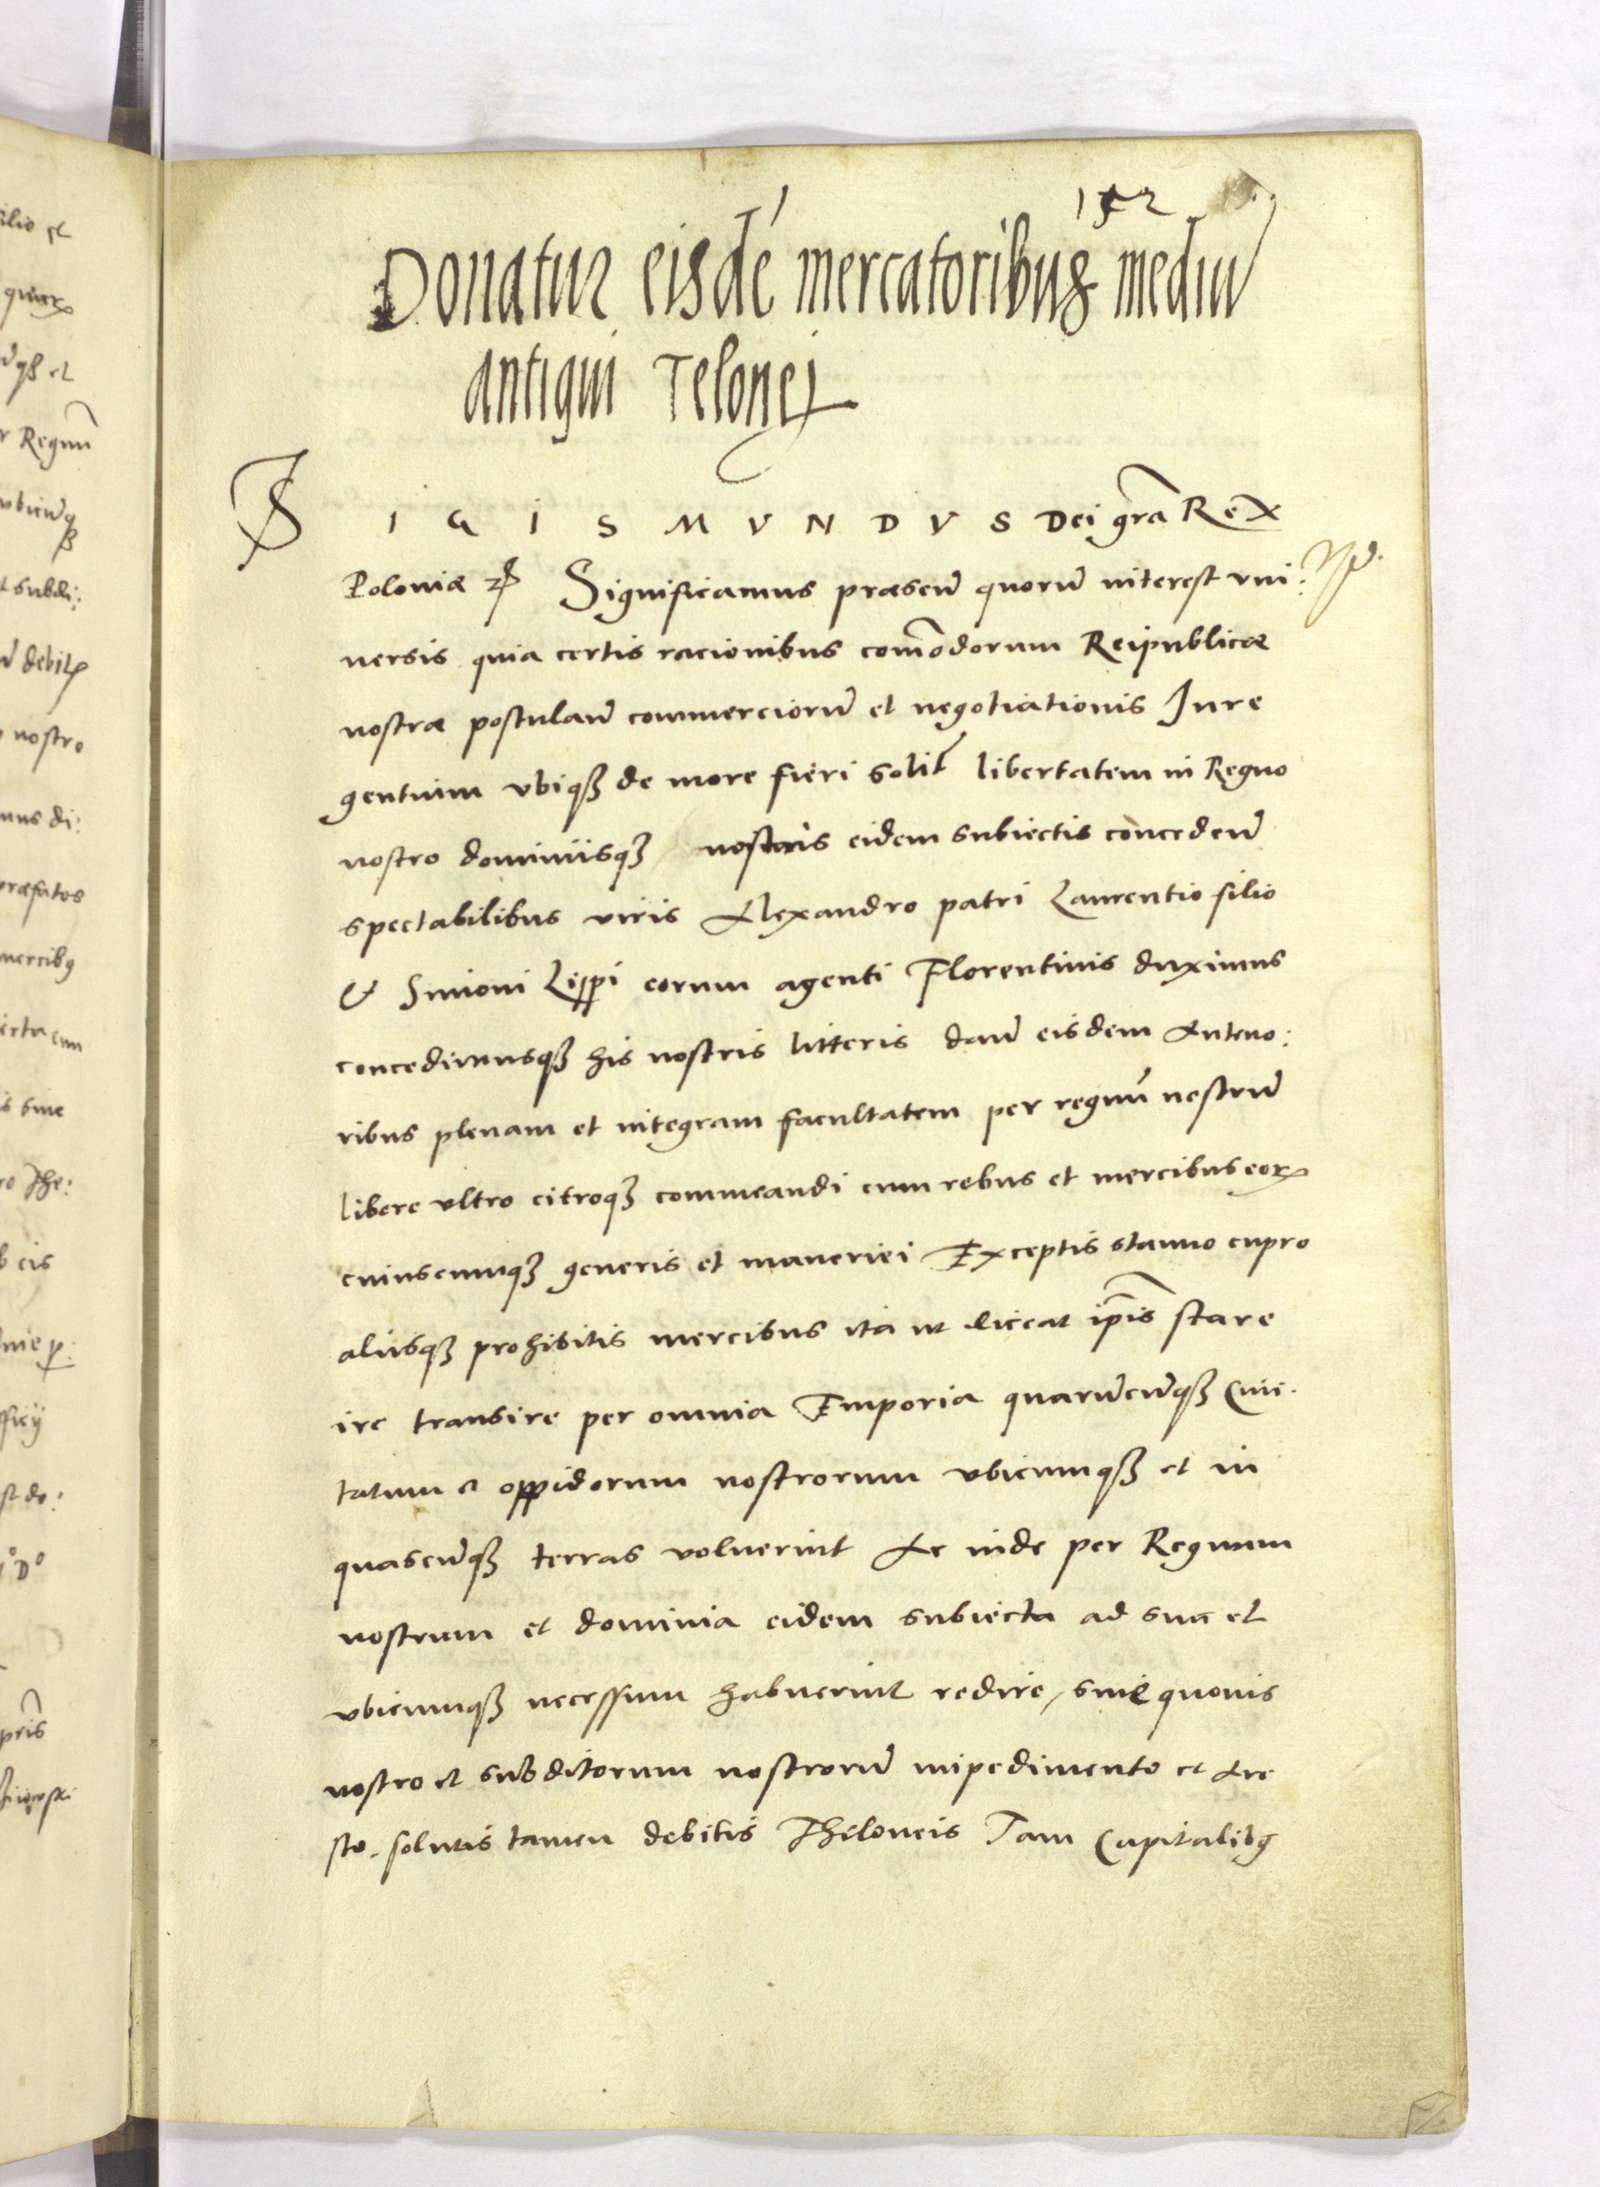 152
Donatur eisdē mercatoribus mediū
antiqui Telonei
SIGISMVNDVS Dei grā Rex
Poloniæ Significamus præsen̄ quorū interest vni:
uersis quia certis racionibus com̄odorum Reipublicæ
nostræ postulan̄ commerciorū et negotiationis Jure
gentium vbiq3 de more fieri solit libertatem in Regno
nostro dominiisq3 nostris eidem subiectis conceden̄
spectabilibus viris Alexandro patri Laurentio filio
& Simoni Lippi eorum agenti Florentinis duximus
concedimusq3 his nostris litteris dan̄ eisdem Anteno:
ribus plenam et integram facultatem per regnū nostrū
libere vltro citroq3 commeandi cum rebus et mercibus eoꝝ
cuiuscumq3 generis et maneriei Exceptis stanno cupro
aliisq3 prohibitis mercibus ita ut liceat ip̄is stare
ire transire per omnia Emporia quarūcūq3 Ciui:
tatum & oppidorum nostrorum vbicumq3 et in
quascūq3 terras voluerint Ac inde per Regnum
nostrum et dominia eidem subiecta ad sua et
vbicumq3 necessum habuerint redire, sine quouis
nostro et subditorum nostrorū impedimento et Are
sto. solutis tamen debitis Theloneis Tam Capitalibꝫ
ilio et
et
Regnū
t subdi:
debitꝭ
nostro
mus di:
præfatos
mercibꝫ
cum
sine
The:
eis
st do: